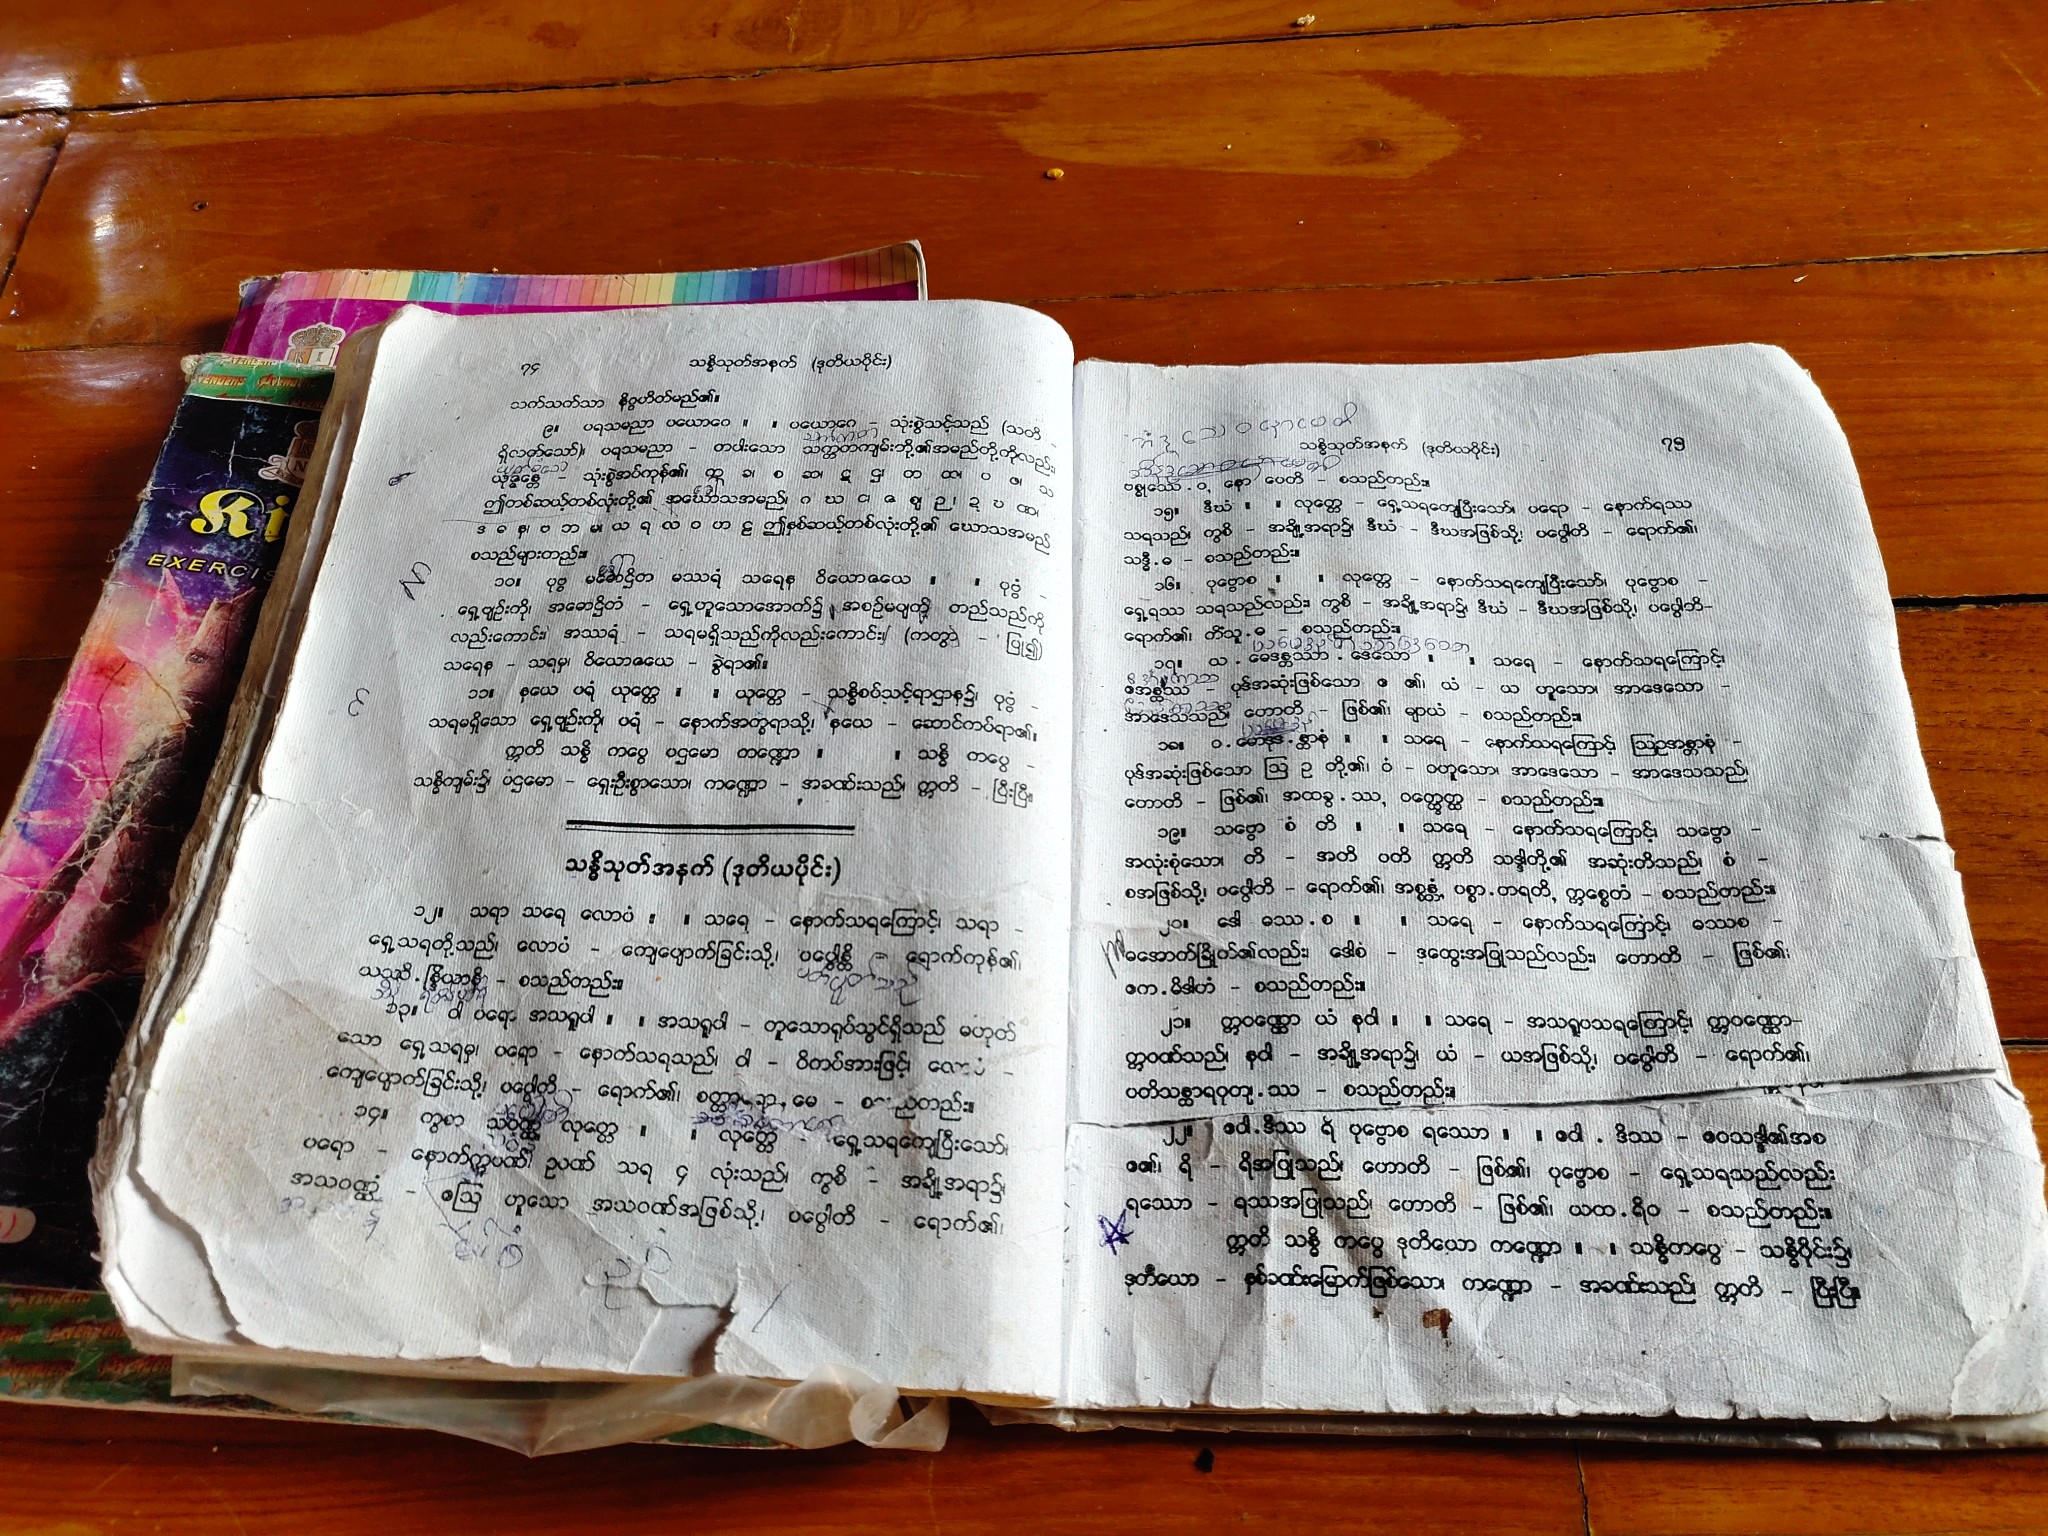 ၇၄ သန္ဓိသုတ်အနက် (ဒုတိယပိုင်း)
သက်သက်သာ နိဂ္ဂဟိတ်မည်၏။
၉။ ပရသမညာ ပယောဂေ ။ ။ ပယောဂေ - သုံးစွဲသင့်သည် (သတိ -
ရှိလတ်သော်)၊ ပရသမညာ - တပါးသော သက္ကတကျမ်းတို့၏အမည်တို့ကိုလည်း၊
ယုဇ္ဇန္တေ - သုံးစွဲအပ်ကုန်၏၊ က္က ခ၊ စ ဆ၊ ဋ ဌ၊ တ ထ၊ ပ ဖ၊ သ
ဤတစ်ဆယ့်တစ်လုံးတို့၏ အဃောသအမည်၊ ဂ ဃ င၊ ဇ ဈ ဉ၊ ဍ ဎ ဏ၊
ဒ ဓ န၊ ဗ ဘ မ၊ ယ ရ လ ဝ ဟ ဠ ဤနှစ်ဆယ့်တစ်လုံးတို့၏ ဃောသအမည်
စသည်များတည်း။
၁၀။ ပုဗ္ဗ မဓောဌိတ မဿရံ သရေန ဝိယောဇယေ ။ ။ ပုဗ္ဗံ -
ရှေ့ဗျဉ်းကို၊ အဓောဌိတံ - ရှေ့ဟူသောအောက်၌ အစဉ်မပျက်၍ တည်သည်ကို
လည်းကောင်း၊ အဿရံ - သရမရှိသည်ကိုလည်းကောင်း၊ (ကတွာ - ပြု၍)
သရေန - သရမှ၊ ဝိယောဇယေ - ခွဲရာ၏။
၁၁။ နယေ ပရံ ယုတ္တေ ။ ။ ယုတ္တေ - သန္ဓိစပ်သင့်ရာဌာန၌၊ ပုဗ္ဗံ -
သရမရှိသော ရှေ့ဗျဉ်းကို၊ ပရံ - နောက်အက္ခရာသို့၊ နယေ - ဆောင်ကပ်ရာ၏။
ဣတိ သန္ဓိ ကပ္ပေ ပဌမော ကဏ္ဍော ။ ။ သန္ဓိ ကပ္ပေ -
သန္ဓိကျမ်း၌၊ ပဌမော - ရှေးဦးစွာသော၊ ကဏ္ဍော - အခဏ်းသည်၊ ဣတိ - ပြီးပြီ။
သန္ဓိသုတ်အနက် (ဒုတိယပိုင်း)
၁၂။ သရာ သရေ လောပံ ။ ။ သရေ - နောက်သရကြောင့်၊ သရာ -
ရှေ့သရတို့သည်၊ လောပံ - ကျေပျောက်ခြင်းသို့၊ ပပ္ပေါန္တိ - ရောက်ကုန်၏၊
ယဿိ.န္ဒြိယာနိ - စသည်တည်း။
၁၃။ ဝါ ပရော အသရူပါ ။ ။ အသရူပါ - တူသောရုပ်သွင်ရှိသည် မဟုတ်
သော ရှေ့သရမှ၊ ပရော - နောက်သရသည်၊ ဝါ - ဝိကပ်အားဖြင့်၊ လောပံ -
ကျေပျောက်ခြင်းသို့၊ ပပ္ပေါတိ - ရောက်၏၊ စတ္တာရော.မေ - စသည်တည်း။
၁၄။ ကွစာ သဝဏ္ဏံ လုတ္တေ ။ ။ လုတ္တေ - ရှေ့သရကျေပြီးသော်၊
ပရော - နောက်ဣဝဏ် ဥဝဏ် သရ ၄ လုံးသည်၊ ကွစိ - အချို့အရာ၌၊
အသဝဏ္ဏံ - ဧဩ ဟူသော အသဝဏ်အဖြစ်သို့၊ ပပ္ပေါတိ - ရောက်၏၊
သန္ဓိသုတ်အနက် (ဒုတိယပိုင်း) ၇၅
ဗန္ဓုဿေ.ဝ, နော ပေတိ - စသည်တည်း။
၁၅။ ဒီဃံ ။ ။ လုတ္တေ - ရှေ့သရကျေပြီးသော်၊ ပရော - နောက်ရဿ
သရသည်၊ ကွစိ - အချို့အရာ၌၊ ဒီဃံ - ဒီဃအဖြစ်သို့၊ ပပ္ပေါတိ - ရောက်၏၊
သဒ္ဓီ.ဓ - စသည်တည်း။
၁၆။ ပုဗ္ဗောစ ။ ။ လုတ္တေ - နောက်သရကျေပြီးသော်၊ ပုဗ္ဗောစ -
ရှေ့ရဿ သရသည်လည်း၊ ကွစိ - အချို့အရာ၌၊ ဒီဃံ - ဒီဃအဖြစ်သို့၊ ပပ္ပေါတိ-
ရောက်၏၊ ကိံသူ.ဓ - စသည်တည်း။
၁၇။ ယ.မေဒန္တဿာ.ဒေသော ။ ။ သရေ - နောက်သရကြောင့်၊
ဧအန္တဿ - ပုဒ်အဆုံးဖြစ်သော ဧ ၏၊ ယံ - ယ ဟူသော၊ အာဒေသော -
အာဒေသသည်၊ ဟောတိ - ဖြစ်၏၊ မျာယံ - စသည်တည်း။
၁၈။ ဝ.မောဒုဒ.န္တာနံ ။ ။ သရေ - နောက်သရကြောင့် ဩဥအန္တာနံ -
ပုဒ်အဆုံးဖြစ်သော ဩ ဥ တို့၏၊ ဝံ - ဝဟူသော၊ အာဒေသော - အာဒေသသည်၊
ဟောတိ - ဖြစ်၏၊ အထခွ.ဿ, ဝတ္ထေတ္ထ - စသည်တည်း။
၁၉။ သဗ္ဗော စံ တိ ။ ။ သရေ - နောက်သရကြောင့်၊ သဗ္ဗော -
အလုံးစုံသော၊ တိ - အတိ ပတိ ဣတိ သဒ္ဒါတို့၏ အဆုံးတိသည်၊ စံ -
စအဖြစ်သို့၊ ပပ္ပေါတိ - ရောက်၏၊ အစ္စန္တံ, ပစ္စာ.တရတိ, ဣစ္စေတံ - စသည်တည်း။
၂၀။ ဒေါ ဓဿ.စ ။ ။ သရေ - နောက်သရကြောင့်၊ ဓဿစ -
ဓအောက်ခြိုက်၏လည်း၊ ဒေါစံ - ဒထွေးအပြုသည်လည်း၊ ဟောတိ - ဖြစ်၏၊
ဧက.မိဒါဟံ - စသည်တည်း။
၂၁။ ဣဝဏ္ဏော ယံ နဝါ ။ ။ သရေ - အသရူပသရကြောင့်၊ ဣဝဏ္ဏော-
ဣဝဏ်သည်၊ နဝါ - အချို့အရာ၌၊ ယံ - ယအဖြစ်သို့၊ ပပ္ပေါတိ - ရောက်၏၊
ပတိသန္ထာရဝုတျ.ဿ - စသည်တည်း။
၂၂။ ဧဝါ.ဒိဿ ရိ ပုဗ္ဗောစ ရဿော ။ ။ ဧဝါ . ဒိဿ - ဧဝသဒ္ဒါ၏အစ
ဧ၏၊ ရိ - ရိအပြုသည်၊ ဟောတိ - ဖြစ်၏၊ ပုဗ္ဗောစ - ရှေ့သရသည်လည်း
ရဿော - ရဿအပြုသည်၊ ဟောတိ - ဖြစ်၏၊ ယထ.ရိဝ - စသည်တည်း။
ဣတိ သန္ဓိ ကပ္ပေ ဒုတိယော ကဏ္ဍော ။ ။ သန္ဓိကပ္ပေ - သန္ဓိပိုင်း၌၊
ဒုတိယော - နှစ်ခဏ်းမြောက်ဖြစ်သော၊ ကဏ္ဍော - အခဏ်းသည်၊ ဣတိ - ပြီးပြီ။
EXERCIS